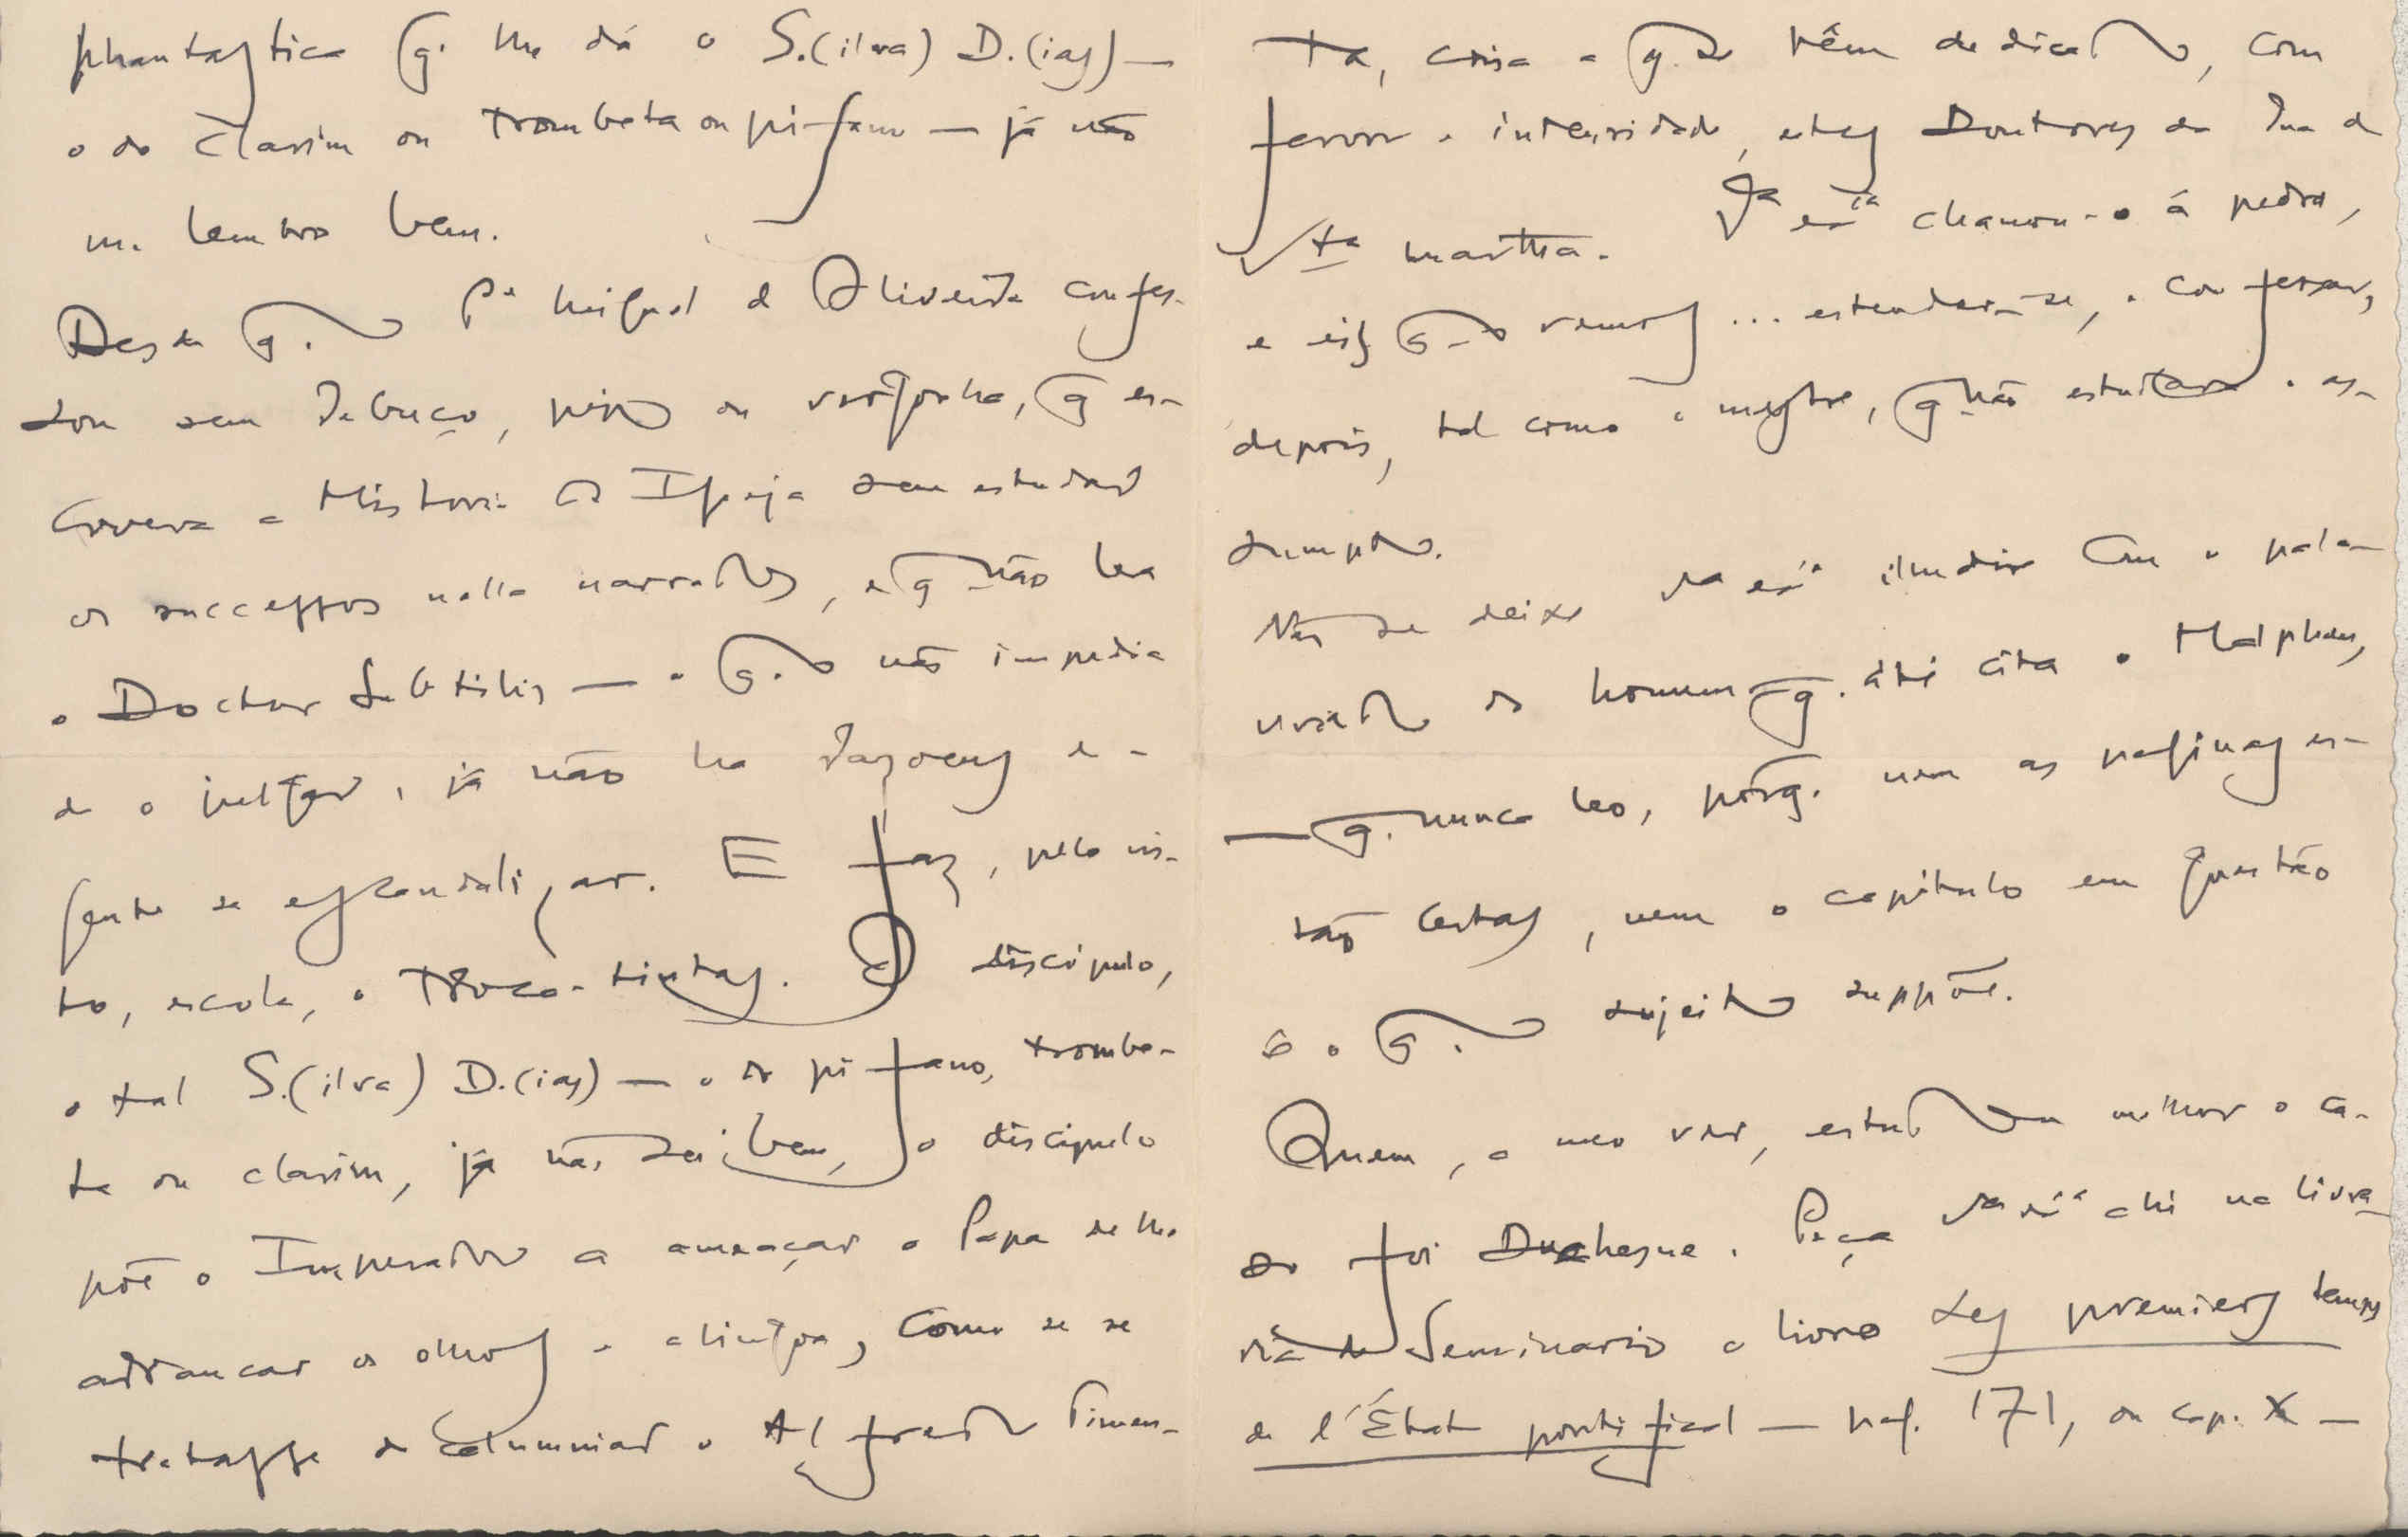 phantastica q. lhe dá o S.(ilva) D.(ias) —
o do clarim ou trombeta ou pifano — já não
me lembro bem.
Desde q. o Pe Miguel de Oliveira confes-
sou sem rebuço, pejo ou vergonha, q es-
crevera a Historia da Igreja sem estudar
os successos nella narrados, e q não lera
o Doctor Subtilis — o q. o não impedia
de o julgar, já não ha razoens de a
gente se escandalizar. E faz, pelo vis-
to, escola, o troca-tintas. O discipulo,
o tal S.(ilva) D.(ias) — o do pifano, trombe-
ta ou clarim, já não sei bem, o discipulo
põe o Imperador a ameaçar o Papa de lhe
arrancar os olhos e a lingoa, como se se
tratasse de calumniar o Alfredo Pimen-
ta, coisa a q. se têm dedicado, com
fervor e intensidade, estes Doutores da Rua de
Sta Martha. Va exa chamou-o á pedra,
e eis q o vemos ... estender-se, e confessar,
depois, tal como o mestre, q não estudara o as-
sumpto.
Não se deixe Va exa illudir com o pala-
vriado do homem q. até cita o Halphen,
— q. nunca leo, porq. nem as paginas es-
tão certas, nem o capitulo em questão
é o q. o sujeito suppõe.
Quem, a meo ver, estudou melhor o ca-
so foi Duchesne. Peça Va exa ahi na livra-
ria do Seminario o livro Les premiers temps
de l'État pontifical — pag. 171, ou cap. X —